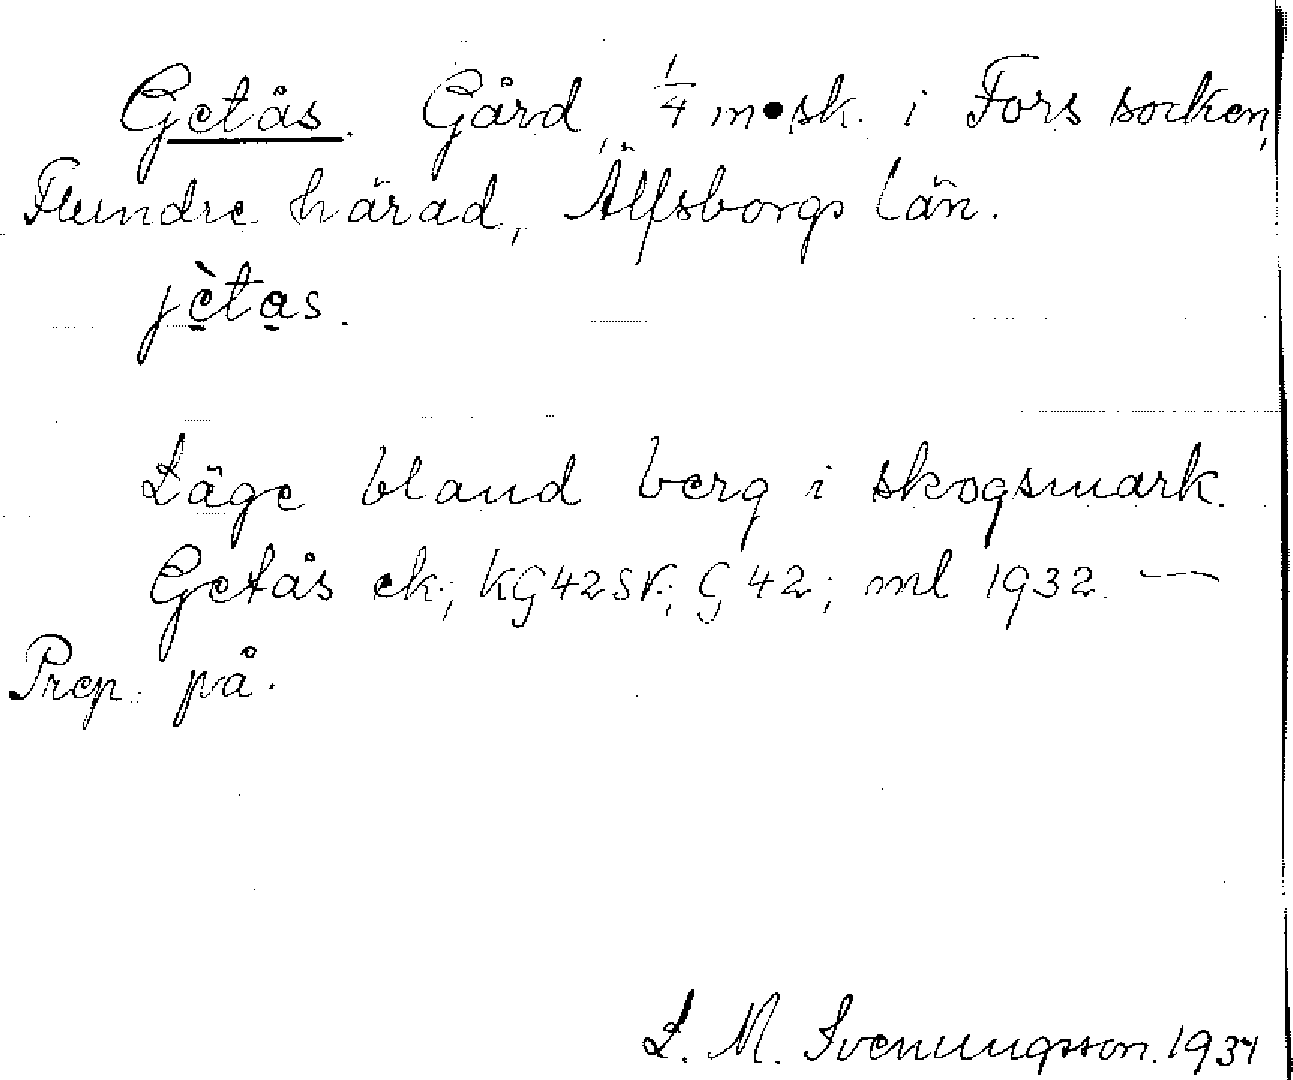 Getås. Gård, 1/4 m. sk. i Fors socken,
Flundre härad, Älfsborgs län.
jètas.
Läge bland berg i skogsmark.
Getås ek.; KG42SV.; G 42; ml 1932. —
Prep. på.
L. M. Svenungsson. 1934